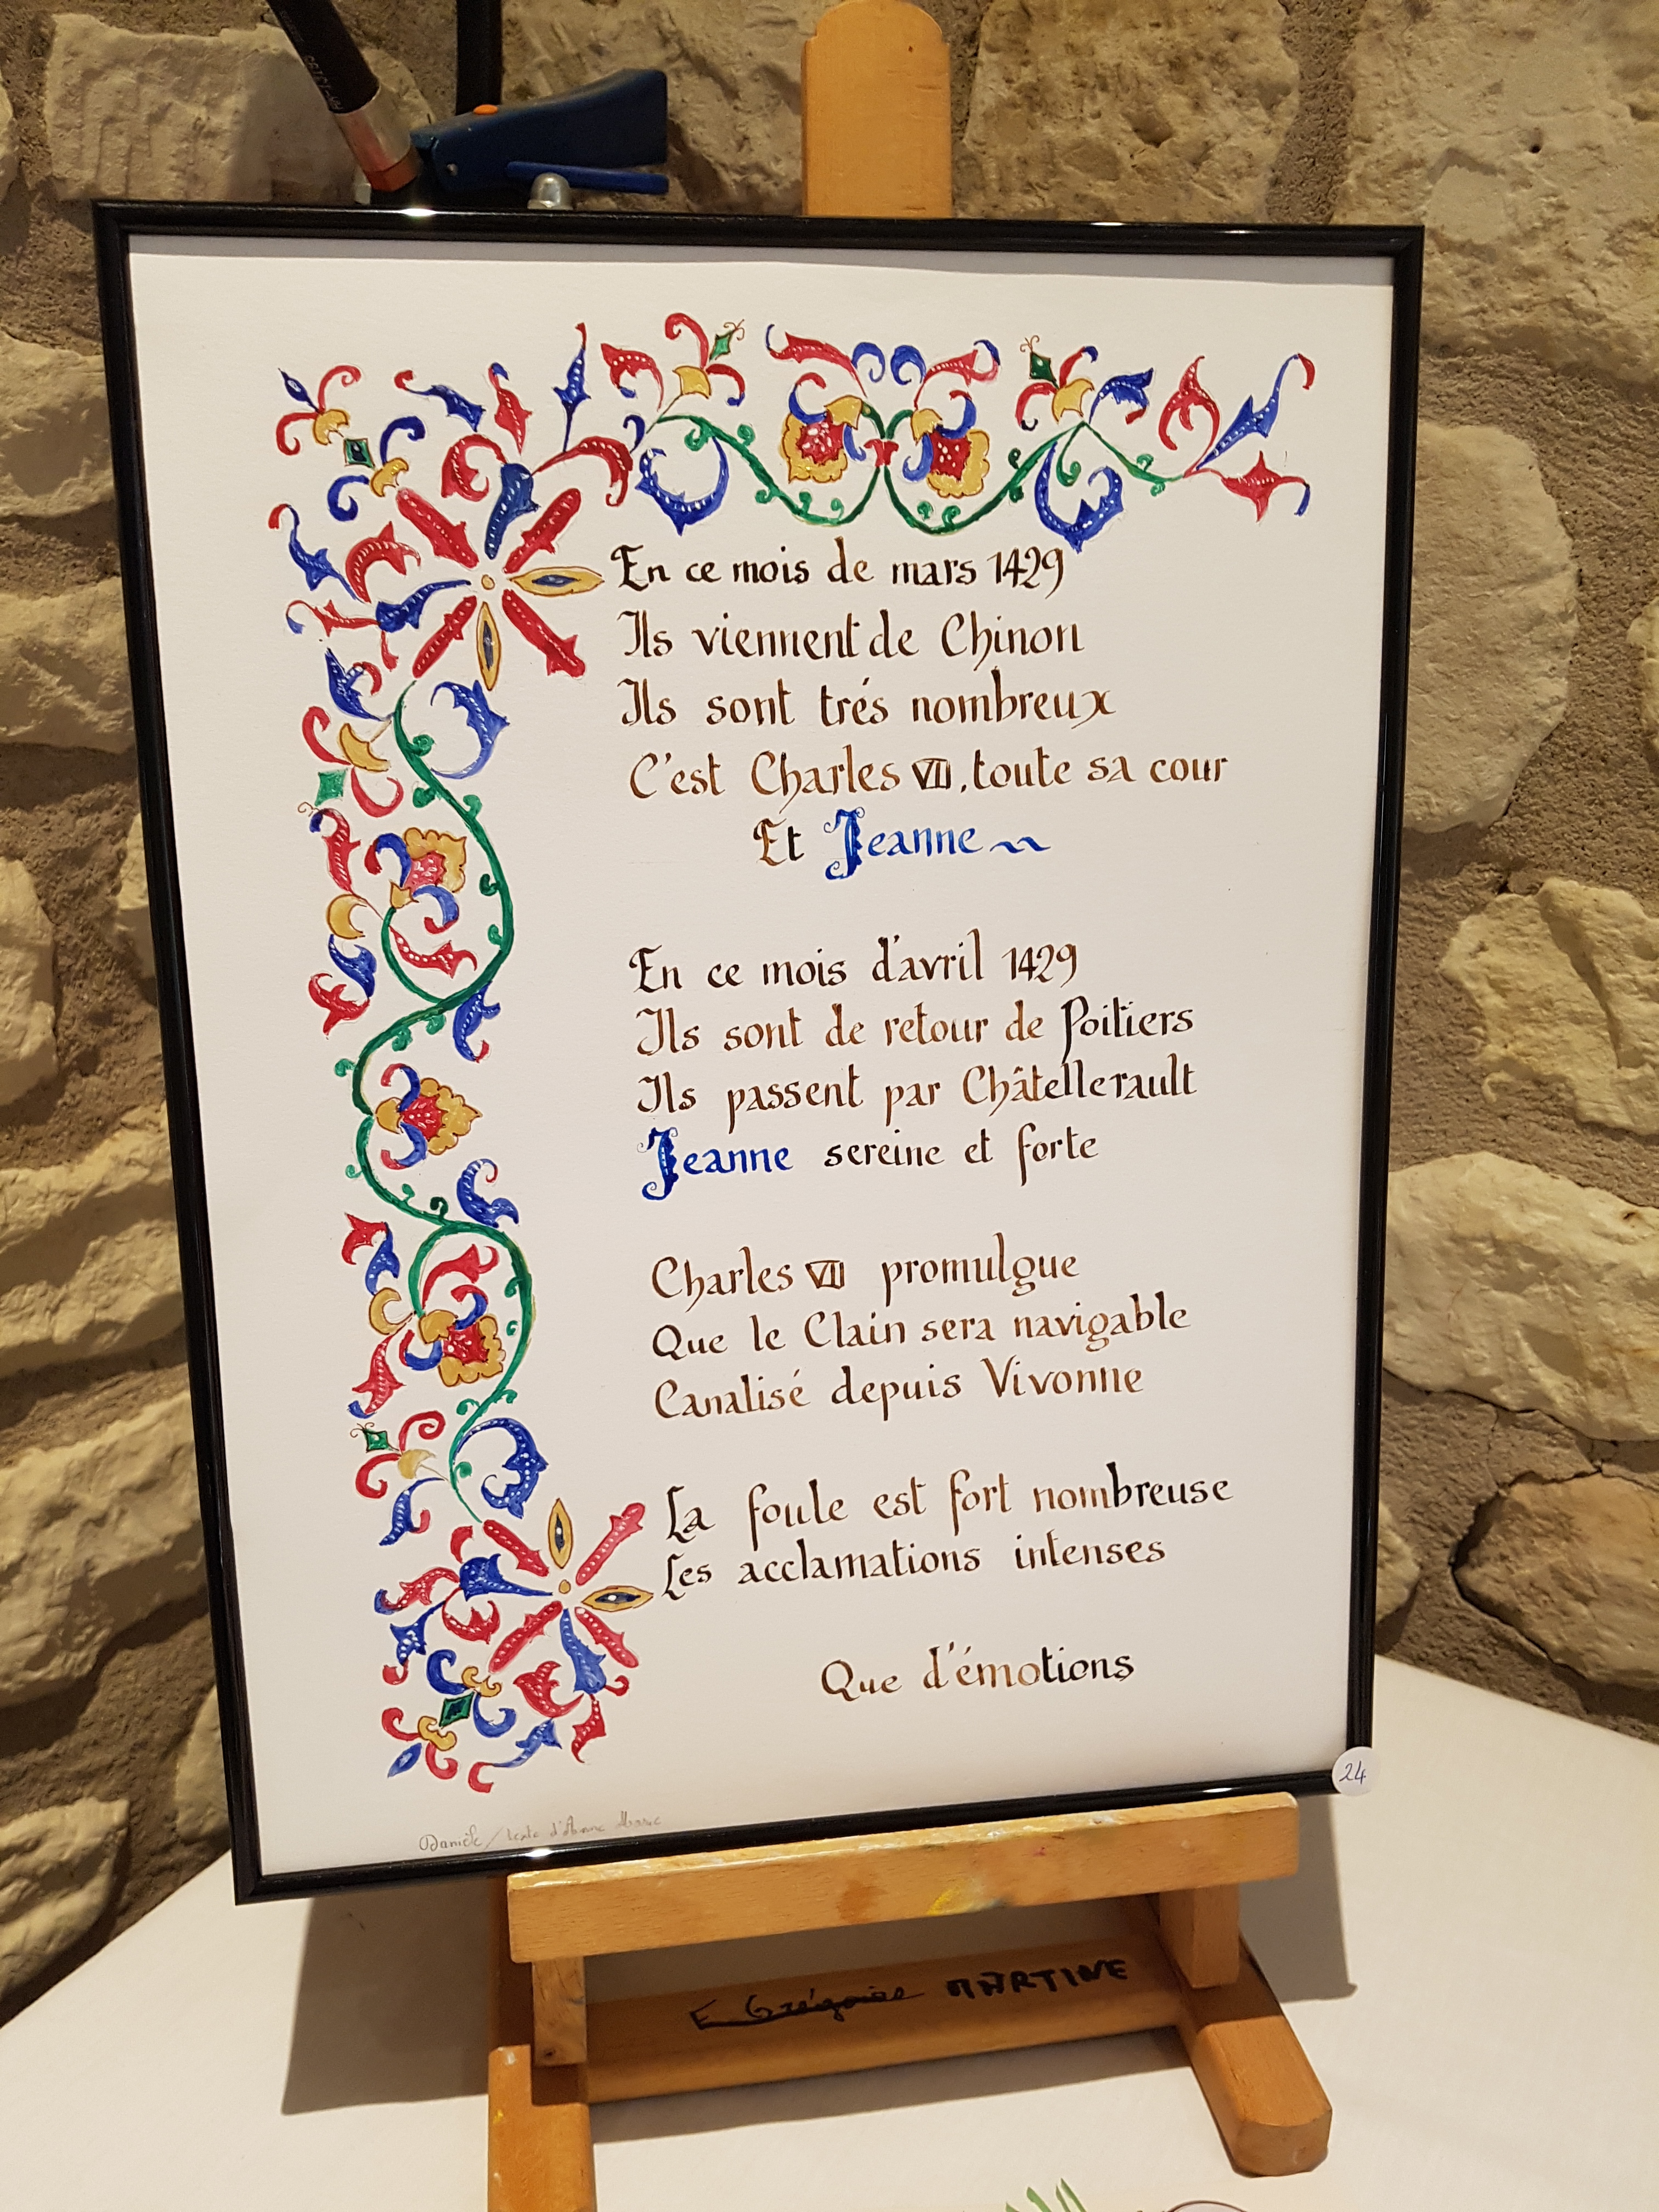 En ce mois de mars 1429
Ils viennent de Chinon
Ils sont trés nombreux
C'est Charles VII, toute sa cour
Et Jeanne
En ce mois d'avril 1429
Ils sont de retour de Poitiers
Ils passent par Châtellerault
Jeanne sereine et forte
Charles VII promulgue
Que le Clain sera navigable
Canalisé depuis Vivonne
La foule est fort nombreuse
Les acclamations intenses
Que d'émotions
24
Danièle / texte d'Anne Marie
E Grégoire MARTINE